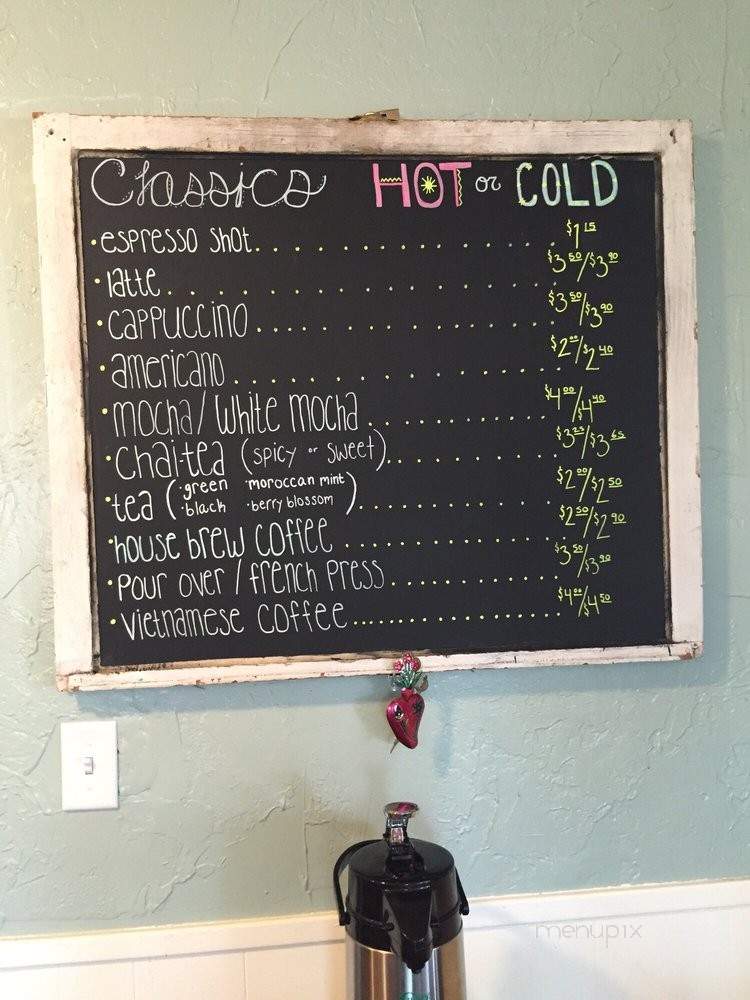 Classics HOT or COLD
• espresso shot. . . . . . . . . . . . . . $1 15
• latte. . . . . . . . . . . . . . . . . . $3 50/$3 90
• cappuccino . . . . . . . . . . . . . . $3 50/$3 90
• americano . . . . . . . . . . . . . . . $2 00/$2 40
• mocha/white mocha . . . . . . . . . . . $4 00/$4 40
• chai-tea (spicy or sweet). . . . . . . . $3 25/$3 65
• tea (•green •moroccan mint
•black •berry blossom) . . . . . . . . . $2 00/$2 50
• house brew coffee . . . . . . . . . . . $2 50/$2 90
• pour over/french press. . . . . . . . . $3 50/$3 90
• vietnamese coffee. . . . . . . . . . . . $4 00/$4 50
menupix